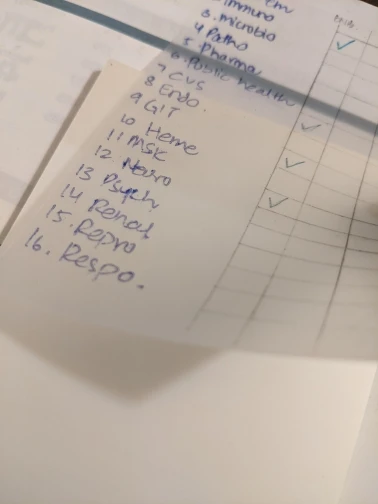 immuno
3. microbio
4 Patho
5. Pharma
6. Public health
7 CVS
8 Endo.
9 GIT
10 Heme
11 MSK
12 Neuro
13 Psych
14 Renal
15. Repro
16. Respo.